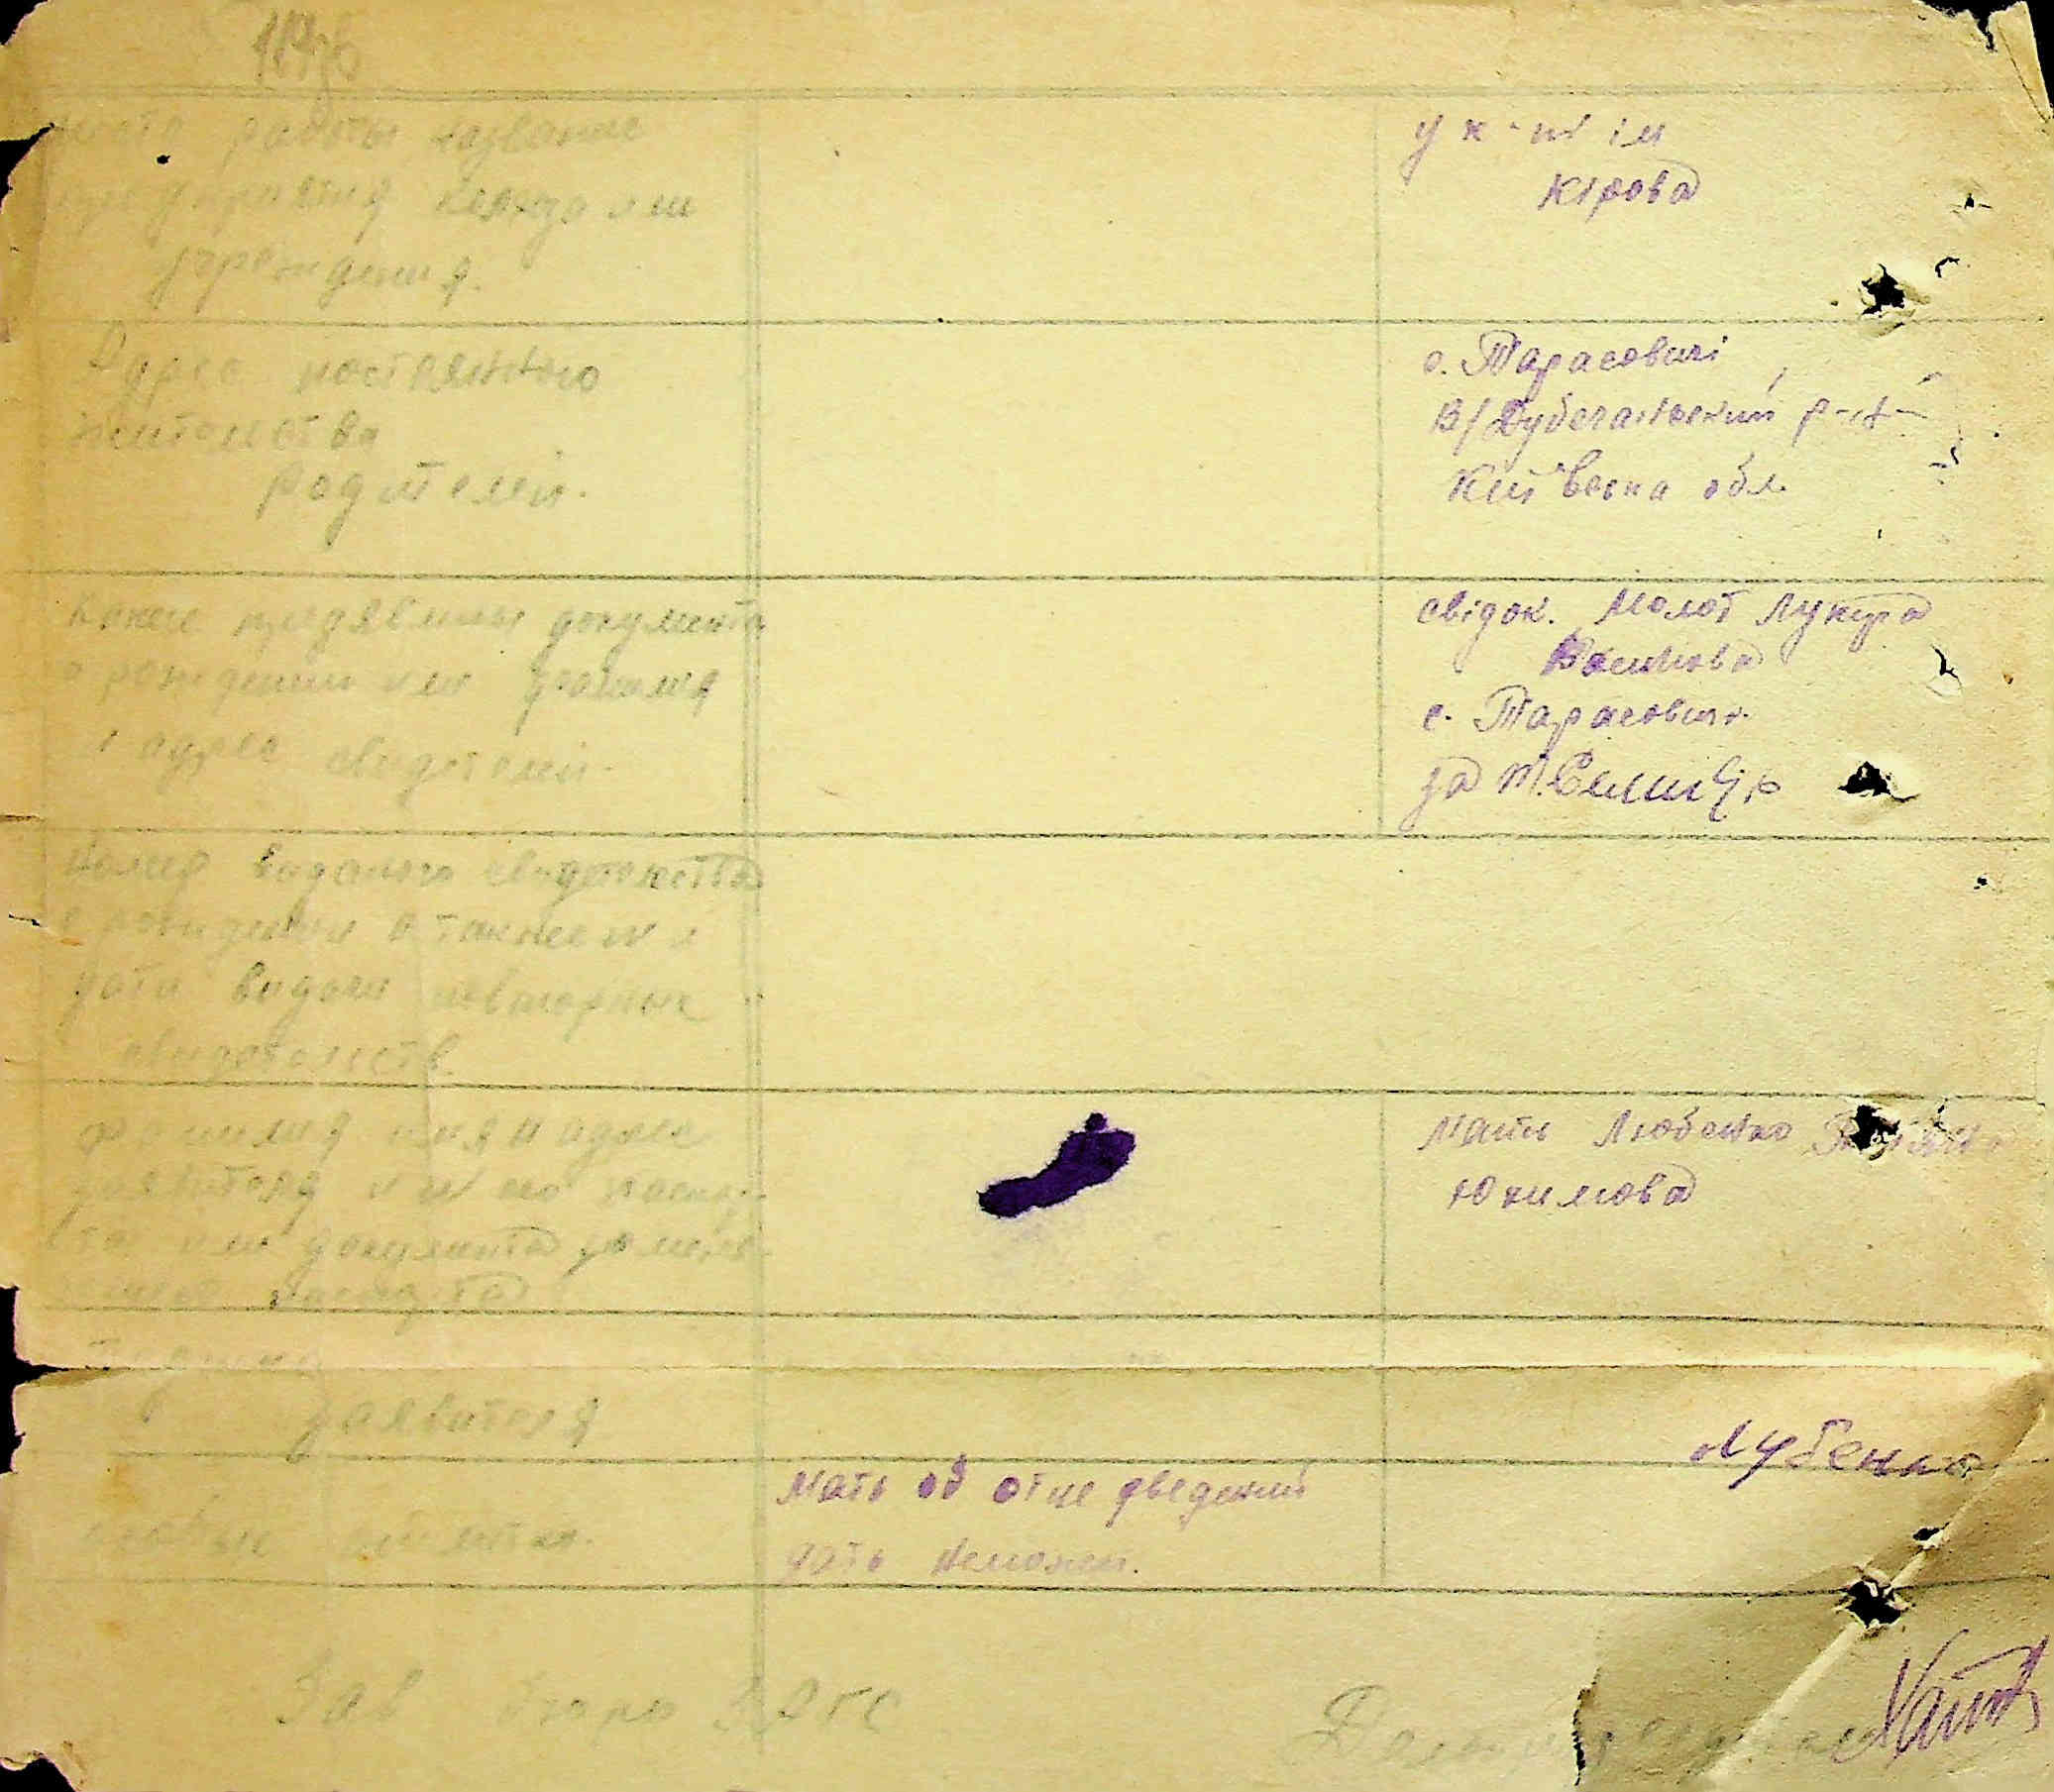 место работы название
предприятия колхоза или
учреждения.
у к-пі ім
Кірова
Адрес постоянного
жительства
родителей.
с. Тарасовичі
В/Дубечанський р-н
Київська обл.
Какие предявлены документы
о рождении или фамилия
и адрес свидетелей.
свідок. Молот Лукера
с. Тарасовичі
за т.
Номер виданого свидетельства
о рождении а также и
дата видачи повторных
свидетельств.
фамилия имя и адрес
заявителя и его паспор-
та или документа заменяю-
щего паспорта
Мать Любенко
Юхимова
Подпись
заявителя
Лубенко
особые отметки.
Мать об отце сведений
дать неможет.
Зав бюро ЗАГС